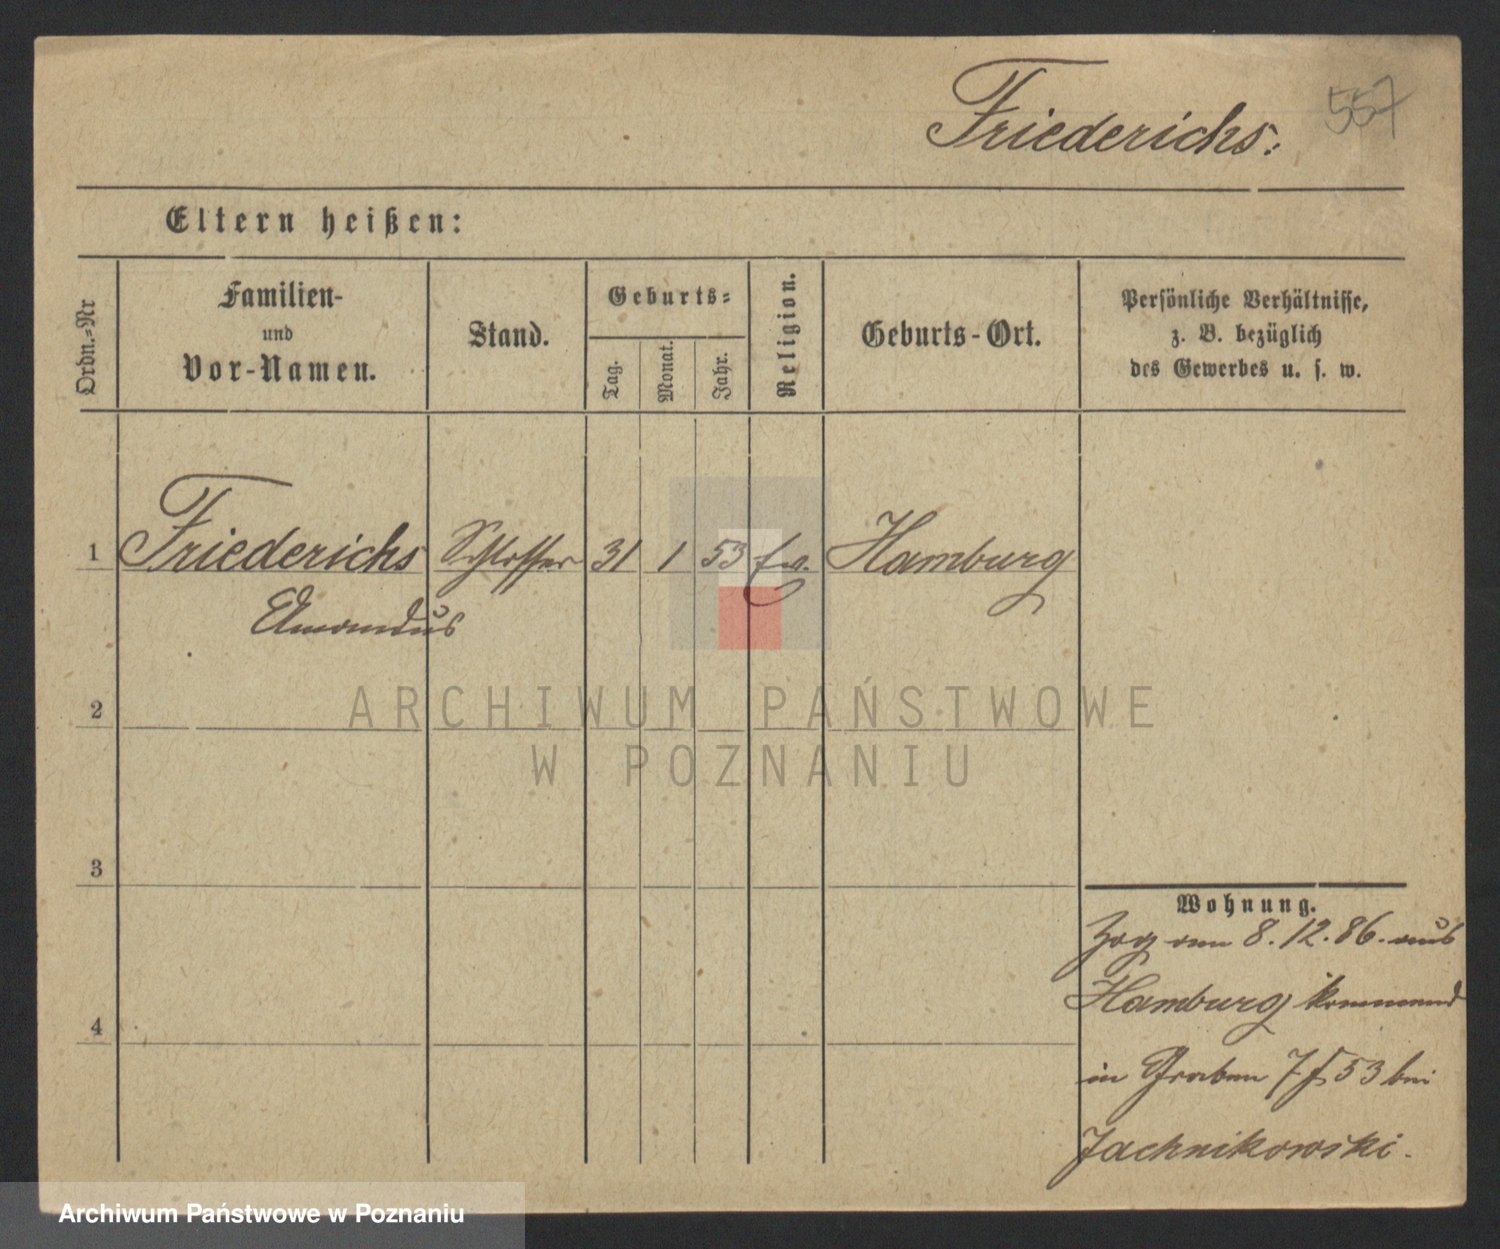 Friederichs.
557
Eltern heißen:
Ordn.-Nr
Familien-
und
Vor-Namen.
Stand.
Geburts-
Tag.
Monat.
Jahr.
Religion.
Geburts-Ort.
Persönliche Verhältnisse,
z. B. bezüglich
des Gewerbes u. s. w.
1 Friederichs Schlosser 31 1 53 ev. Hamburg
Amandus
2
3
4
Wohnung.
Zog am 8.12.86. aus
Hamburg kommend
in Graben 53 bei
Jachnikowski.
ARCHIWUM PAŃSTWOWE
W POZNANIU
Archiwum Państwowe w Poznaniu